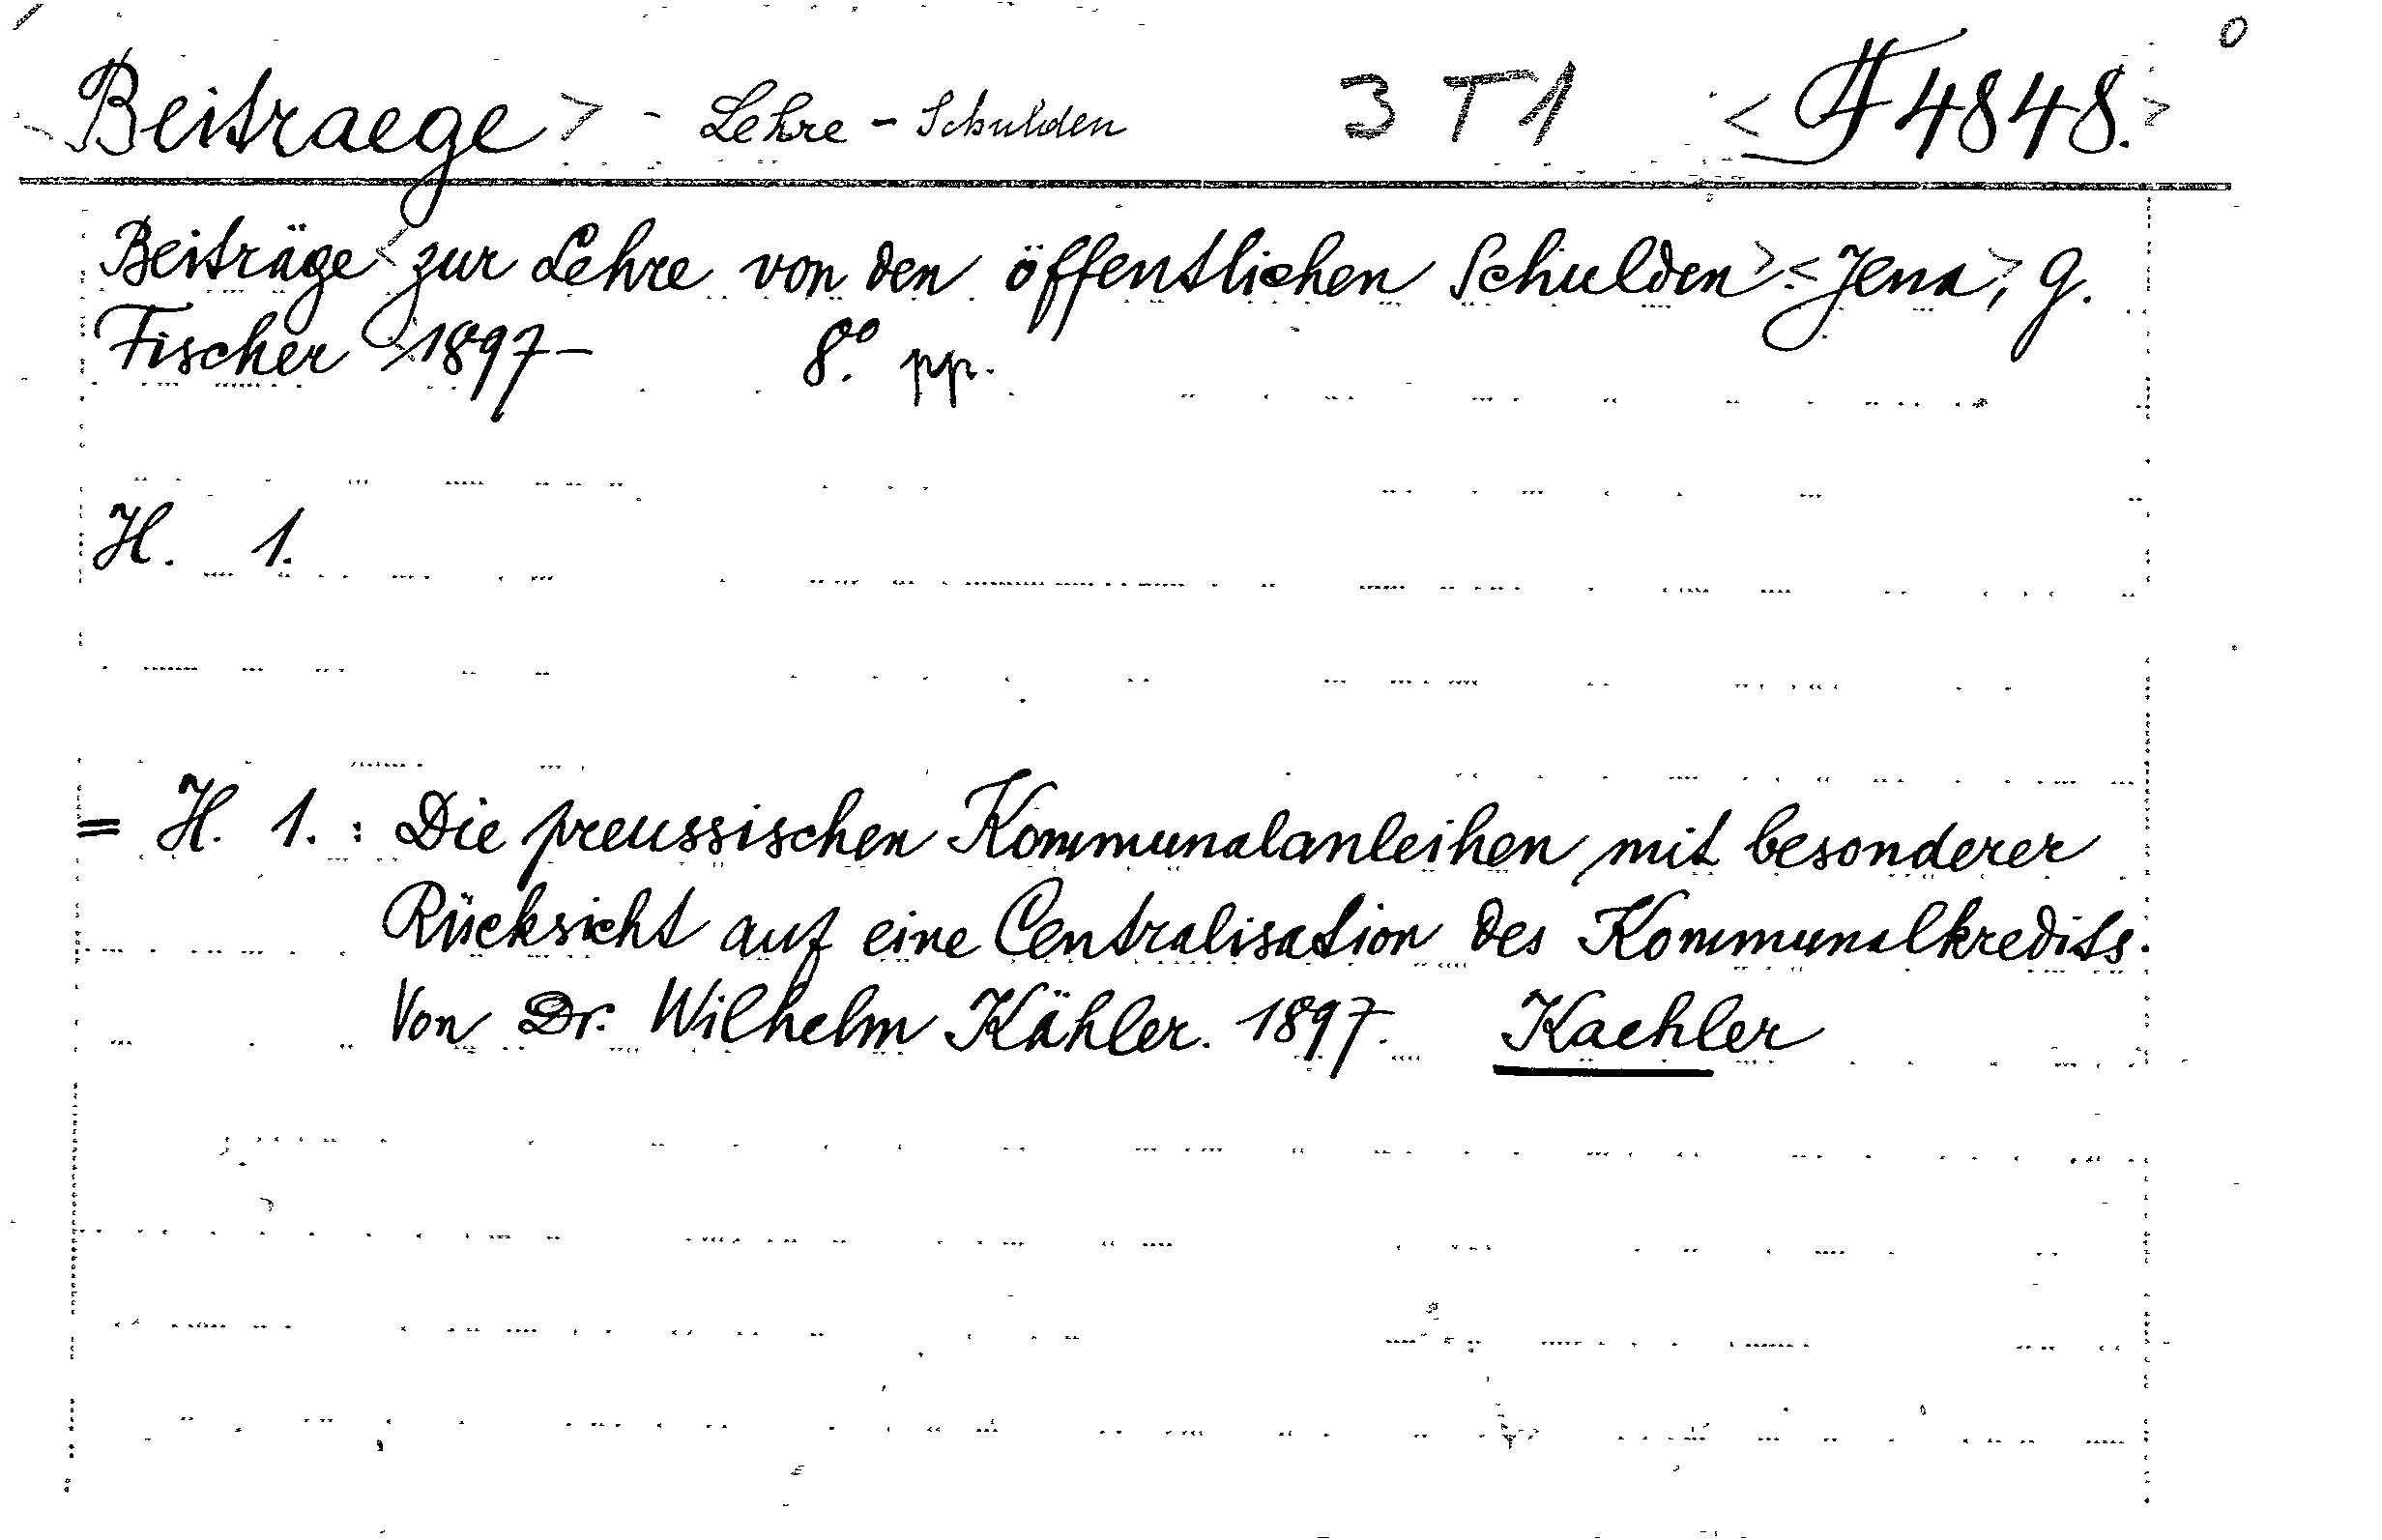 <Beitraege> - Lehre - Schulden 3 T1 <F 4848.>
Beiträge <zur Lehre von den öffentlichen Schulden>. <Jena>, G.
Fischer <1897- 8.° pp.
H. 1.
= H. 1. : Die preussischen Kommunalanleihen mit besonderer
Rücksicht auf eine Centralisation des Kommunalkredits.
Von Dr. Wilhelm Kähler. 1897. Kaehler